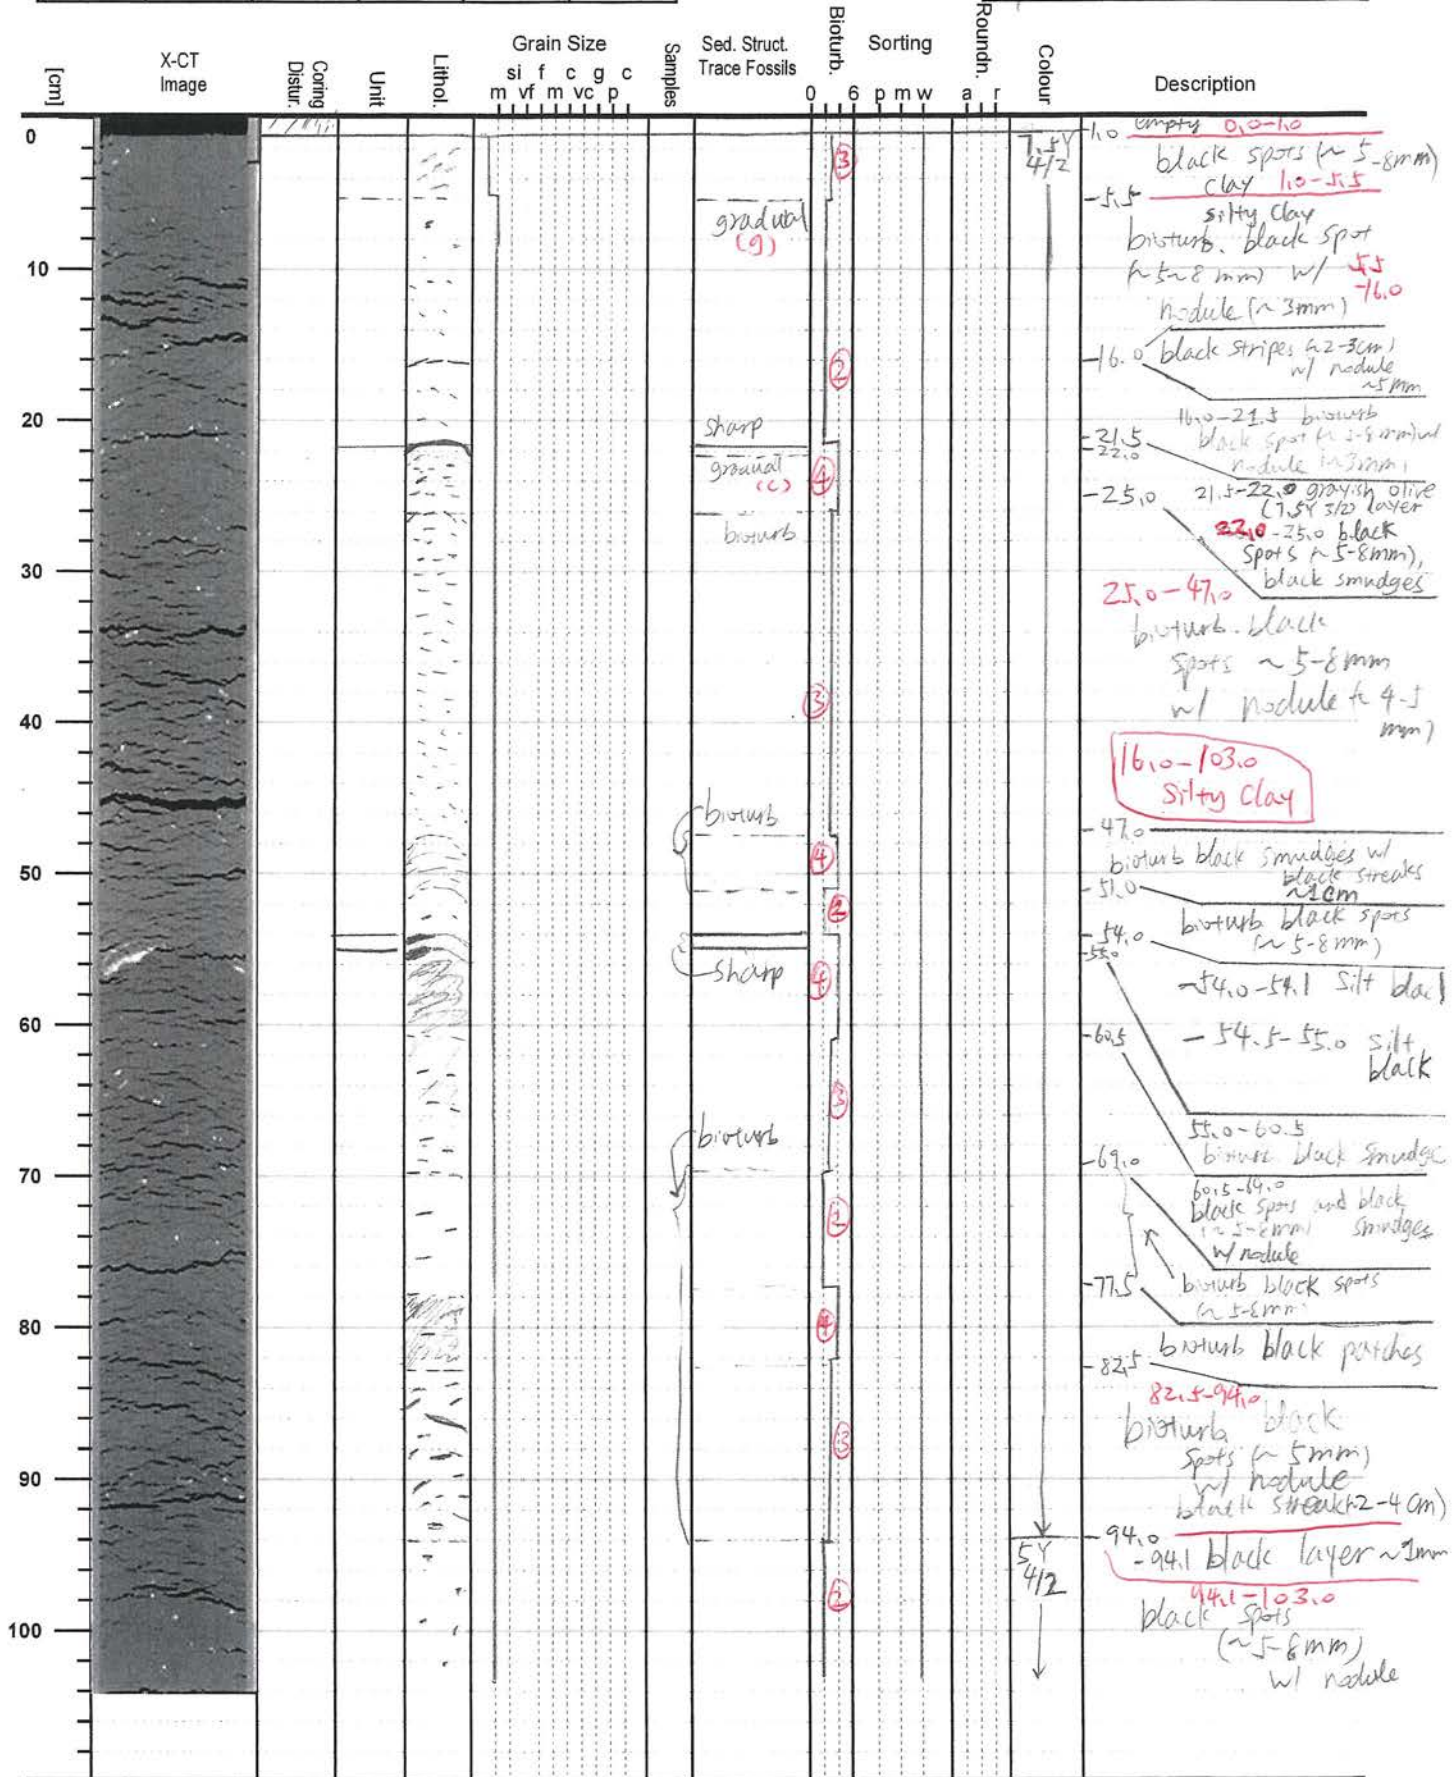 [cm]
X-CT
Image
Coring
Distur.
Unit
Lithol.
Grain Size
si f c g c
m vf m vc p
Samples
Sed. Struct.
Trace Fossils
Bioturb.
0 6
Sorting
p m w
Roundn.
a r
Colour
Description
0
10
20
30
40
50
60
70
80
90
100
gradual
(g)
sharp
gradual
(c)
bioturb
bioturb
sharp
bioturb
3
2
4
3
4
2
4
3
1
4
3
2
7.5Y
4/2
5Y
4/2
1.0
empty 0.0-1.0
black spots (~5-8mm)
clay 1.0-5.5
5.5
silty clay
bioturb. black spot
(~5~8 mm) w/ 5.5
-16.0
nodule (~3mm)
16.0 black stripes (~2-3cm)
w/ nodule
~5mm
16.0-21.5 bioturb
21.5
black spot (~5-8mm) w/
22.0
nodule (~3mm)
25.0
21.5-22.0 grayish olive
(7.5Y 3/2) layer
22.0-25.0 black
spots (~5-8mm),
black smudges
25.0-47.0
bioturb. black
spots ~5-8mm
w/ nodule (~4-5
mm)
16.0-103.0
Silty Clay
47.0
bioturb black smudges w/
black streaks
~1cm
51.0
bioturb black spots
(~5-8mm)
54.0
55.0
-54.0-54.1 Silt blac
-54.5-55.0 silt
black
60.5
55.0-60.5
bioturb black smudge
69.0
60.5-69.0
black spots and black
(~5-8mm) smudges
w/ nodule
77.5
bioturb black spots
(~5-8mm
bioturb black patches
82.5
82.5-94.0
bioturb black
spots (~5mm)
w/ nodule
black streak (~2-4cm)
94.0
-94.1 black layer ~1mm
94.1-103.0
black spots
(~5-8mm)
w/ nodule